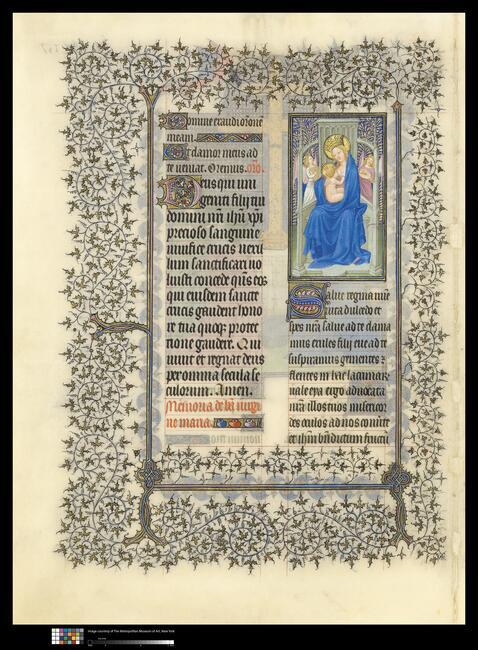 Domine exaudi orone
meam.
Et clamor meus ad
te veniat. Oremus. oro.
Deus qui uni
geniti filij tui
domini nri ihu xpi
precioso sanguine
vivifice crucis vexil
lum sanctificari vo
luisti concede qs eos
qui eiusdem sancte
crucis gaudent hono
re tua quoq; protec
tione gaudere. Qui
vivit et regnat deus
per omnia secula se
culorum. Amen.
Memoria de bta virgi
ne maria.
Salve regina mise
vita dulcedo et
spes nra salve ad te clama
mus exules filij eve ad te
suspiramus gementes et
flentes in hac lacrimar;
valle eya ergo advocata
nra illos tuos misericor
des oculos ad nos converte
et ihm bndictum fructu
Image courtesy of The Metropolitan Museum of Art, New York